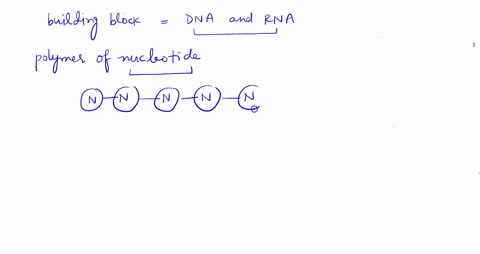 building block = DNA and RNA
polymer of nucleotide
N N N N N